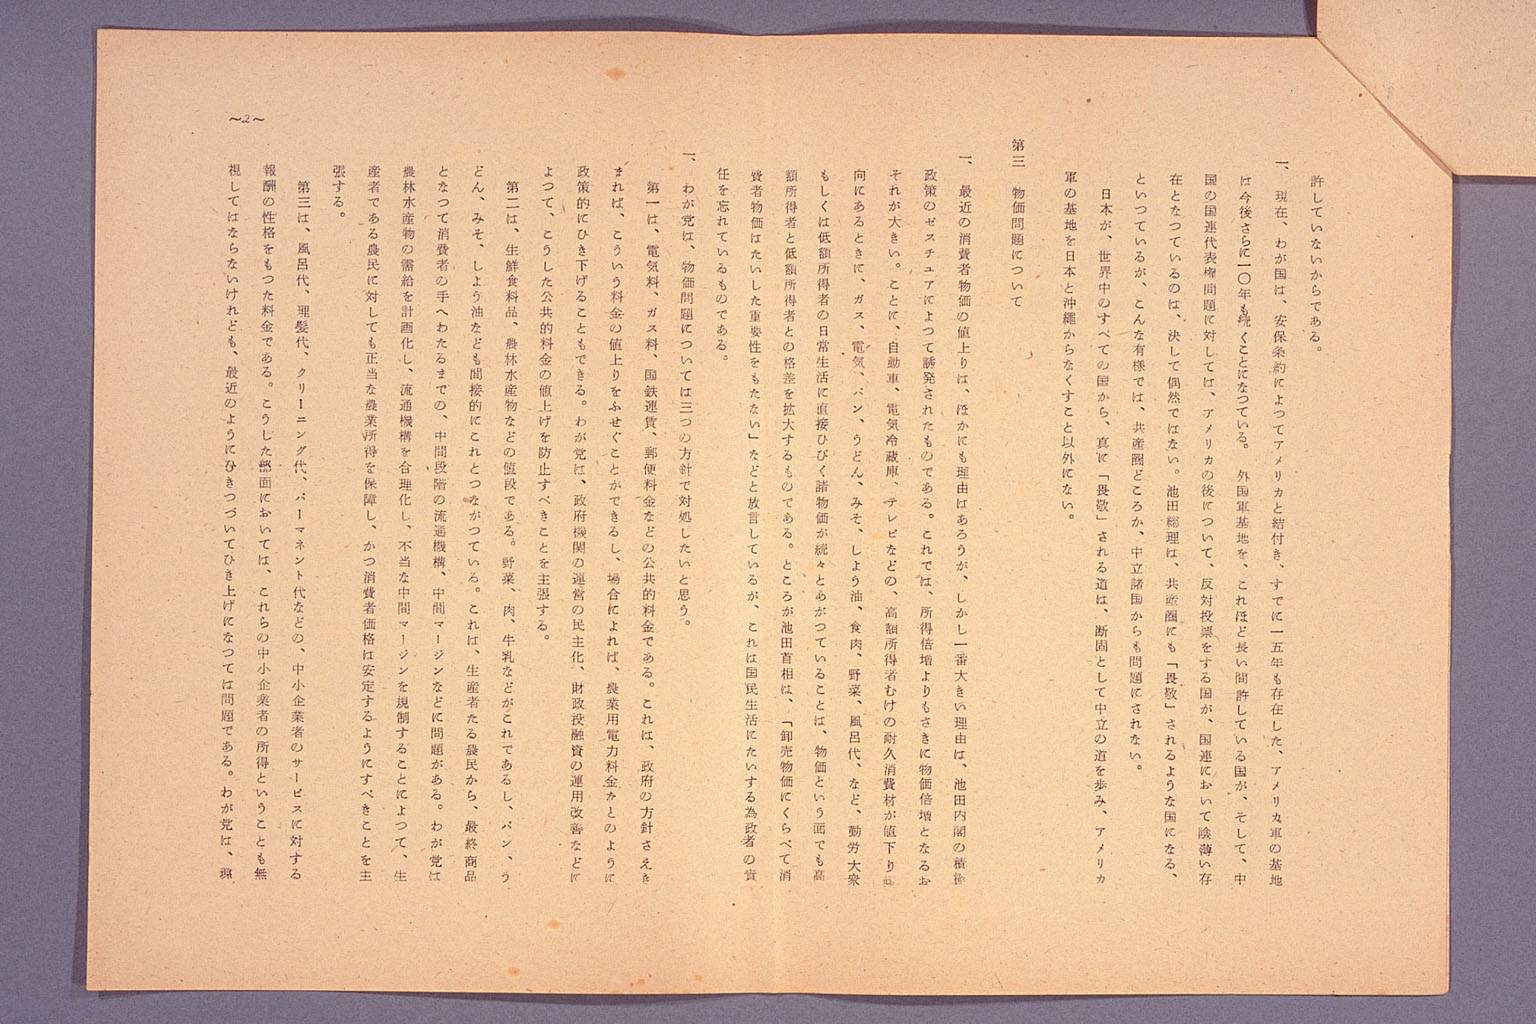 許していないからである。
一、現在、わが国は、安保条約によつてアメリカと結付き、すでに一五年も存在した、アメリカ軍の基地
は今後さらに一〇年も続くことになつている。 外国軍基地を、これほど長い間許している国が、そして、中
国の国連代表権問題に対しては、アメリカの後について、反対投票をする国が、国連において陰薄い存
在となつているのは、決して偶然ではない。池田総理は、共産圏にも「畏敬」されるような国になる、
といつているが、こんな有様では、共産圏どころか、中立諸国からも問題にされない。
日本が、世界中のすべての国から、真に「畏敬」される道は、断固として中立の道を歩み、アメリカ
軍の基地を日本と沖縄からなくすこと以外にない。
第三 物価問題について
一、最近の消費者物価の値上りは、ほかにも理由はあろうが、しかし一番大きい理由は、池田内閣の積極
政策のゼスチュアによつて誘発されたものである。これでは、所得倍増よりもさきに物価倍増となるお
それが大きい。ことに、自動車、電気冷蔵庫、テレビなどの、高額所得者むけの耐久消費材が値下り傾
向にあるときに、ガス、電気、パン、うどん、みそ、しよう油、食肉、野菜、風呂代、など、勤労大衆
もしくは低額所得者の日常生活に直接ひびく諸物価が続々とあがつていることは、物価という面でも高
額所得者と低額所得者との格差を拡大するものである。ところが池田首相は、「卸売物価にくらべて消
費者物価はたいした重要性をもたない」などと放言しているが、これは国民生活にたいする為政者の責
任を忘れているものである。
一、わが党は、物価問題については三つの方針で対処したいと思う。
第一は、電気料、ガス料、国鉄運賃、郵便料金などの公共的料金である。これは、政府の方針さえき
まれば、こういう料金の値上りをふせぐことができるし、場合によれば、農業用電力料金などのように
政策的にひき下げることもできる。わが党は、政府機関の運営の民主化、財政投融資の運用改善などに
よつて、こうした公共的料金の値上げを防止すべきことを主張する。
第二は、生鮮食料品、農林水産物などの値段である。野菜、肉、牛乳などがこれであるし、パン、う
どん、みそ、しよう油なども間接的にこれとつながつている。これは、生産者たる農民から、最終商品
となつて消費者の手へわたるまでの、中間段階の流通機構、中間マージンなどに問題がある。わが党は
農林水産物の需給を計画化し、流通機構を合理化し、不当な中間マージンを規制することによつて、生
産者である農民に対しても正当な農業所得を保障し、かつ消費者価格は安定するようにすべきことを主
張する。
第三は、風呂代、理髪代、クリーニング代、パーマネント代などの、中小企業者のサービスに対する
報酬の性格をもつた料金である。こうした部面においては、これらの中小企業者の所得ということも無
視してはならないけれども、最近のようにひきつづいてひき上げになつては問題である。わが党は、環
〜2〜